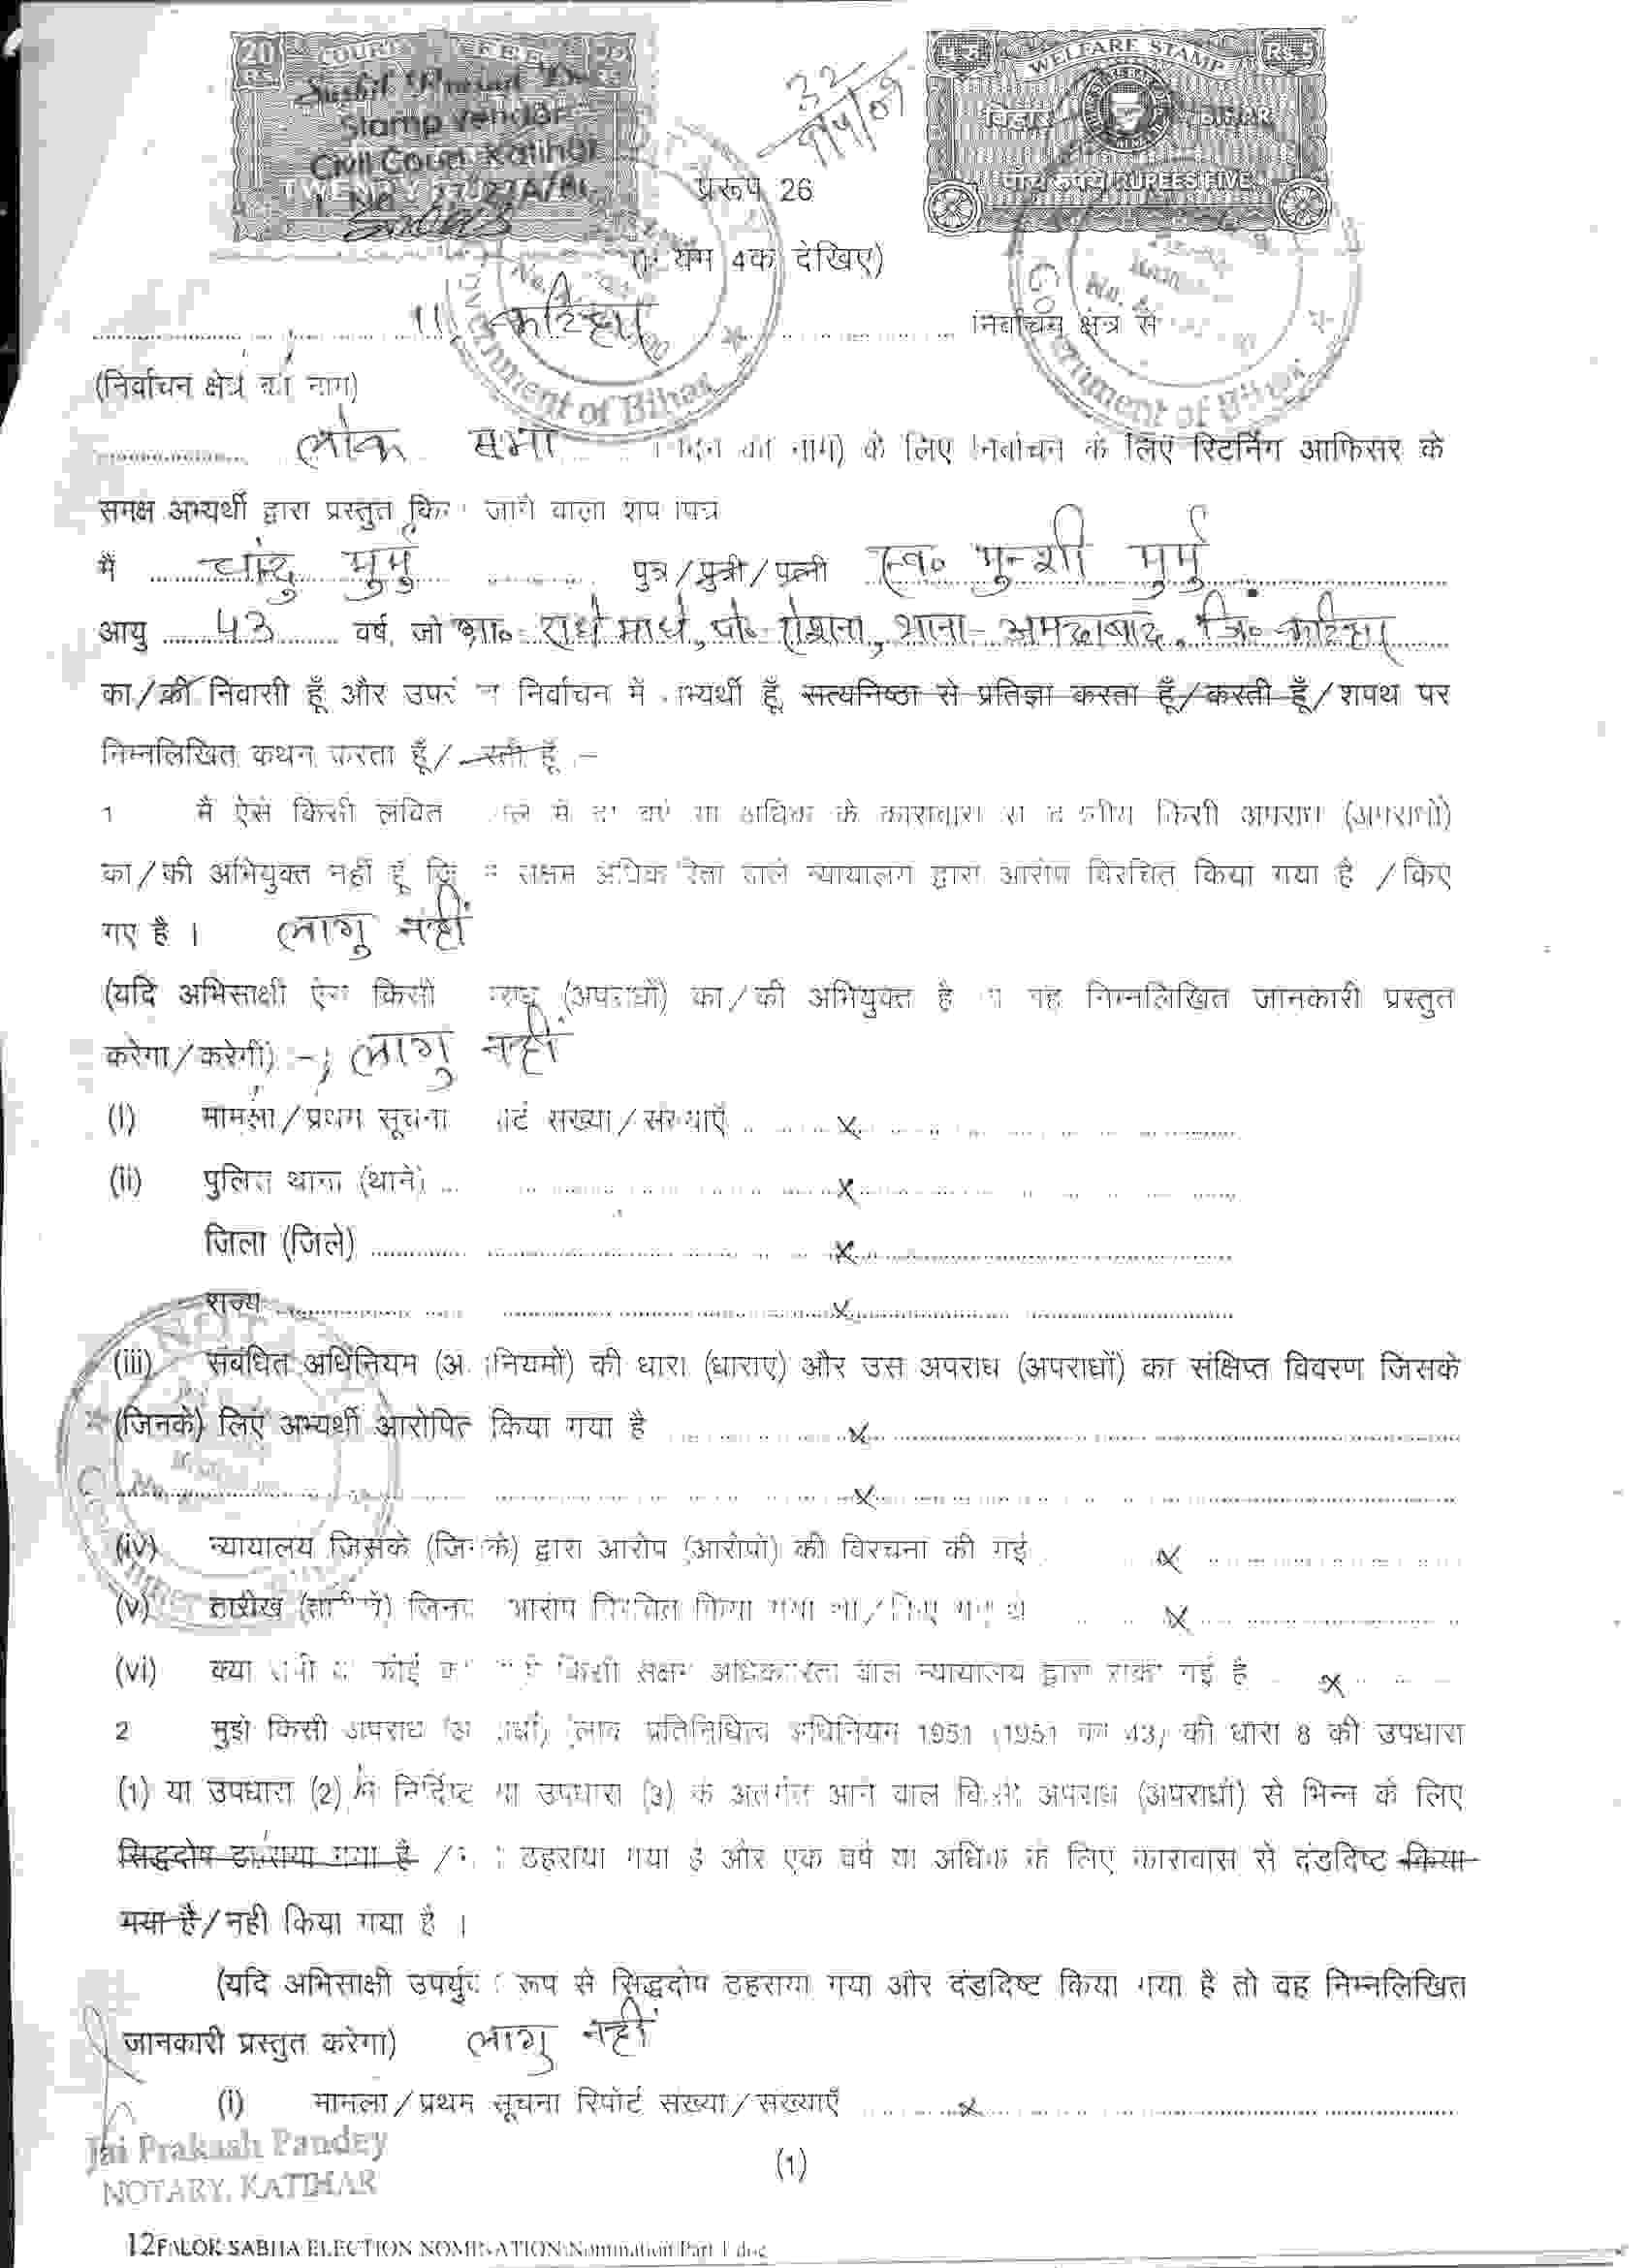 20
RS.
COURT FEE
Stamp Vendor
Civil Court Katihar
32
9/4/09
WELFARE STAMP
Rs. 5
बिहार BIHAR
पांच रूपये RUPEES FIVE
प्ररूप 26
4क देखिए)
Government of Bihar
Government of Bihar
11, कटिहार निर्वाचन क्षेत्र से
(निर्वाचन क्षेत्र का नाम)
लोक सभा का नाम) के लिए निर्वाचन के लिए रिटर्निंग आफिसर के
समक्ष अभ्यर्थी द्वारा प्रस्तुत किया जाने वाला शपथ पत्र
मैं चांदु मुर्मु पुत्र/पुत्री/पत्नी स्व० मुन्शी मुर्मु
आयु 43 वर्ष, जो ग्रा०- राधे माधे, पो०- रोशना, थाना- अमदाबाद, जि०- कटिहार
का/की निवासी हूँ और उपरोक्त निर्वाचन में अभ्यर्थी हूँ, सत्यनिष्ठा से प्रतिज्ञा करता हूँ/करती हूँ/शपथ पर
निम्नलिखित कथन करता हूँ/करती हूँ :-
1 मैं ऐसे किसी लंबित मामले में दो वर्ष या अधिक के कारावास से दंडनीय किसी अपराध (अपराधों)
का/की अभियुक्त नहीं हूँ सक्षम अधिकारिता वाले न्यायालय द्वारा आरोप विरचित किया गया है /किए
गए है । लागु नहीं
(यदि अभिसाक्षी ऐसे किसी अपराध (अपराधों) का/की अभियुक्त है तो वह निम्नलिखित जानकारी प्रस्तुत
करेगा/करेगी) :-; लागु नहीं
(i) मामला/प्रथम सूचना रिपोर्ट संख्या/संख्याएँ x
(ii) पुलिस थाना (थाने) x
जिला (जिले) x
राज्य x
(iii) संबंधित अधिनियम (अधिनियमों) की धारा (धाराएं) और उस अपराध (अपराधों) का संक्षिप्त विवरण जिसके
(जिनके) लिए अभ्यर्थी आरोपित किया गया है x
x
(iv) न्यायालय जिसके (जिनके) द्वारा आरोप (आरोपों) की विरचना की गई x
(v) तारीख (तारीखें) आरोप विरचित किया गया था/किए गए थे x
(vi) क्या किसी सक्षम अधिकारिता वाले न्यायालय द्वारा रोकी गई है x
2 मुझे किसी अपराध (अपराधों) (लोक प्रतिनिधित्व अधिनियम 1951 (1951 का 43) की धारा 8 की उपधारा
(1) या उपधारा (2) में निर्दिष्ट या उपधारा (3) के अंतर्गत आने वाले किसी अपराध (अपराधों) से भिन्न के लिए
सिद्धदोष ठहराया गया है / ठहराया गया है और एक वर्ष या अधिक के लिए कारावास से दंडदिष्ट किया
गया है/नहीं किया गया है ।
(यदि अभिसाक्षी उपर्युक्त रूप से सिद्धदोष ठहराया गया और दंडदिष्ट किया गया है तो वह निम्नलिखित
जानकारी प्रस्तुत करेगा) लागु नहीं
(i) मामला/प्रथम सूचना रिपोर्ट संख्या/संख्याएँ x
Jai Prakash Pandey
NOTARY, KATIHAR
(1)
12F:\LOK SABHA ELECTION NOMINATION\Nomination Part 1.doc